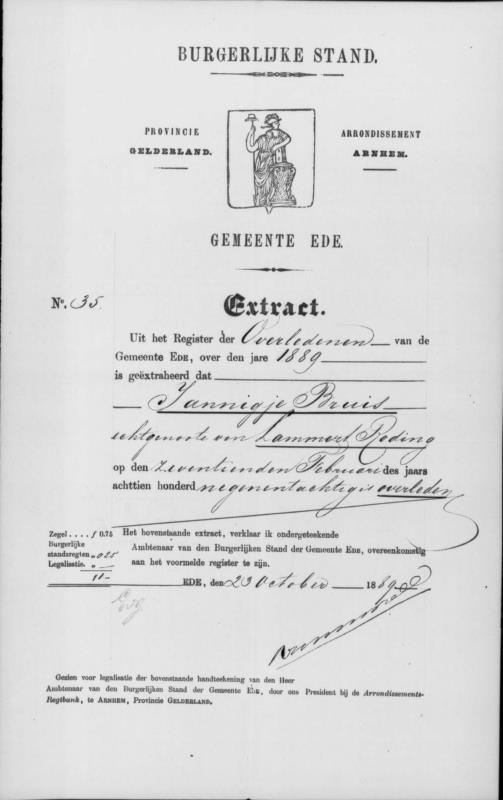 BURGERLIJKE STAND.
PROVINCIE
GELDERLAND.
ARRONDISSEMENT
ARNHEM.
GEMEENTE EDE.
No. 35.
Extract.
Uit het Register der Overledenen van de
Gemeente EDE, over den jare 1889
is geëxtraheerd dat
Jannigje Bruis
echtgenoote van Lammert Roding
op den Zeventienden Februari des jaars
achttien honderd negenentachtig is overleden
Zegel . . . . ƒ 0.75
Burgerlijke
standsregten „ 0 25
Legalisatie. „ —
11 -
Het bovenstaande extract, verklaar ik ondergeteekende
Ambtenaar van den Burgerlijken Stand der Gemeente EDE, overeenkomstig
aan het voormelde register te zijn.
EDE, den 23 October 1889
Gezien voor legalisatie der bovenstaande handteekening van den Heer
Ambtenaar van den Burgerlijken Stand der Gemeente EDE, door ons President bij de Arrondissements-
Regtbank, te ARNHEM, Provincie GELDERLAND.